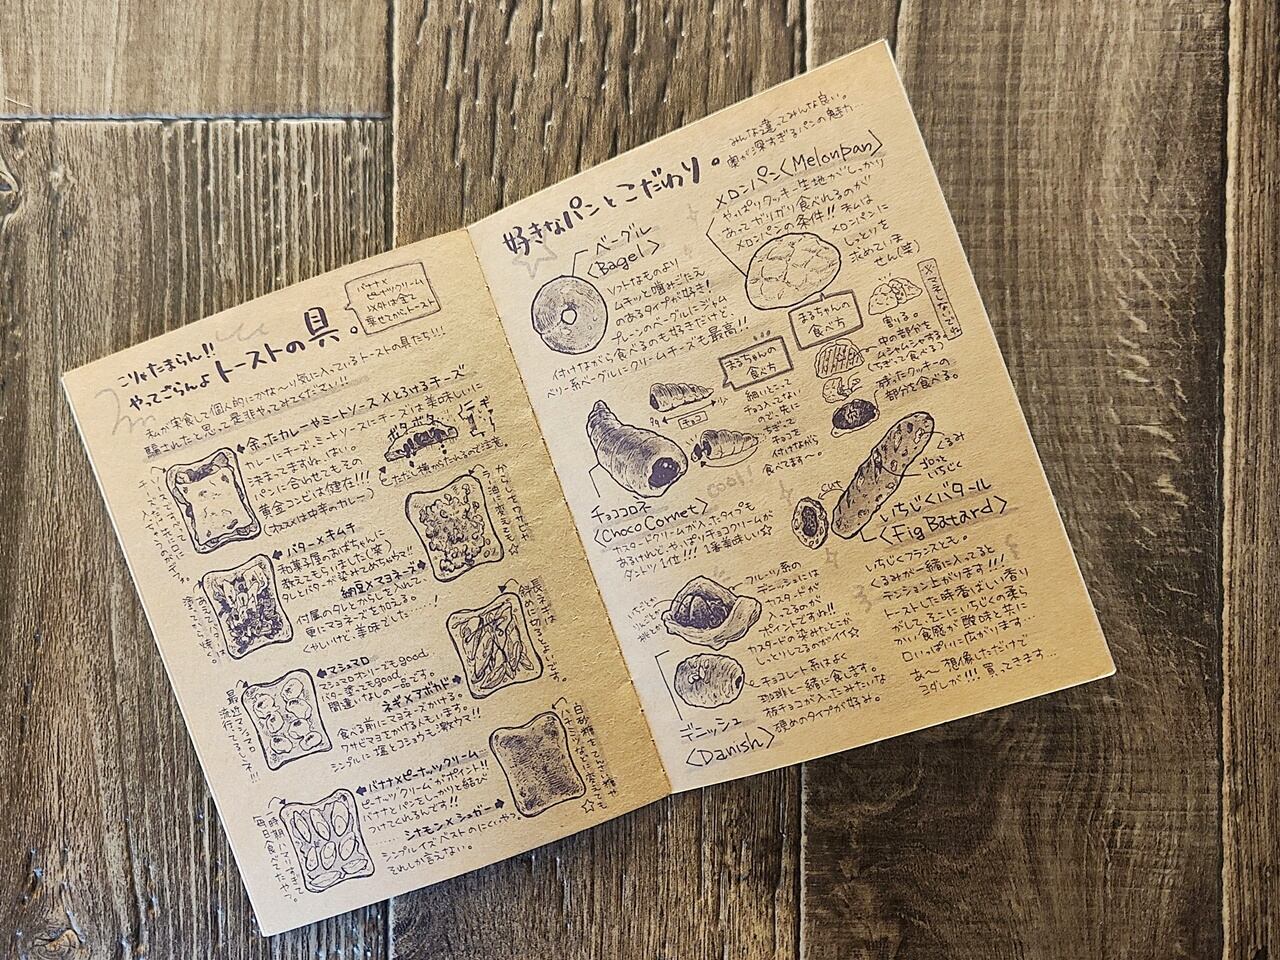 こりゃたまらん!!
やってごらんよトーストの具。
バナナ×
ピーナッツクリーム
以外は全て
乗せてから、トースト
私が実食して個人的にかな〜り気に入っているトーストの具たち!!!
騙されたと思って是非やってみてください!!
余ったカレーやミートソース×とろけるチーズ
カレーにチーズ、ミートソースにチーズは美味しいに
決まってますね。はい。
パンに合わせてもその
黄金コンビは健在!!!
ただし端から
たれるので注意。
バター×キムチ
和菓子屋のおばちゃんに
教えてもらいました(笑)
タレとバターが染みてめちゃウマ!!
納豆×マヨネーズ
付属のタレとからしを入れて
更にマヨネーズを加える。
くやしいけど、美味でした……!
マシュマロ
マシュマロオンリーでもgood。
バター塗ってもgood。
間違いなしの一品です。
最近マシュマロ
流行ってるよネ!!!
ネギ×アボカド
食べる前にマヨネーズかける。
ワサビマヨをかける人もいます。
シンプルに塩とコショウも激ウマ!!
バナナ×ピーナッツクリーム
ピーナッツクリームがポイント!!
バナナとパンをしっかりと結び
つけてくれるんです!!
毎日食べてたや〜。
シナモン×シュガー
シンプルイズベストのにくいやつ。
それしか言えない。
好きなパンとこだわり。
みんな違ってみんな良い。
奥が深すぎるパンの魅力…
ベーグル
〈Bagel〉
ソフトなものより
ムチッと噛みごたえ
のあるタイプが好き!
プレーンのベーグルにジャム
付けながら食べるのも好きだけど、
ベリー系ベーグルにクリームチーズも最高!!
メロンパン〈Melonpan〉
やっぱりクッキー生地がしっかり
あってガリガリ食べれるのが
メロンパンの条件!! 私は
メロンパンに
しっとりを
求めていま
せん(笑)
まるちゃんの
食べ方
割る。
中の部分を
ムシャムシャする
(ちぎって食べる)
残ったクッキーの
部分を食べる。
まるちゃんの
食べ方
チョコ
細いとって
チョコ入ってない
ので、先に
ちぎって
チョコを
付けながら
食べてます〜。
チョココロネ
〈Choco Cornet〉
カスタードクリームが入ったタイプも
あるけれど やっぱりチョコクリームが
ダントツ1位!!! 1番美味しい☆
cut
くるみ
ドライ
いちじく
いちじくバタール
〈Fig Batard〉
いちじくフランスとも。
くるみが一緒に入ってると
テンション上がります!!!
トーストした時香ばしい香り
がして、そこにいちじくの柔ら
かい食感が酸味と共に
口いっぱいに広がります…
あ〜想像しただけで
ヨダレが!!! 買ってきます…
フルーツ系の
デニッシュには
カスタードが
入ってるのが
ポイントですね!!
カスタードの染みたとこが
しっとりしてるのがイイ☆
チョコレート系はよく
珈琲と一緒に食します。
板チョコが入ったみたいな
硬めのタイプが好み。
デニッシュ
〈Danish〉